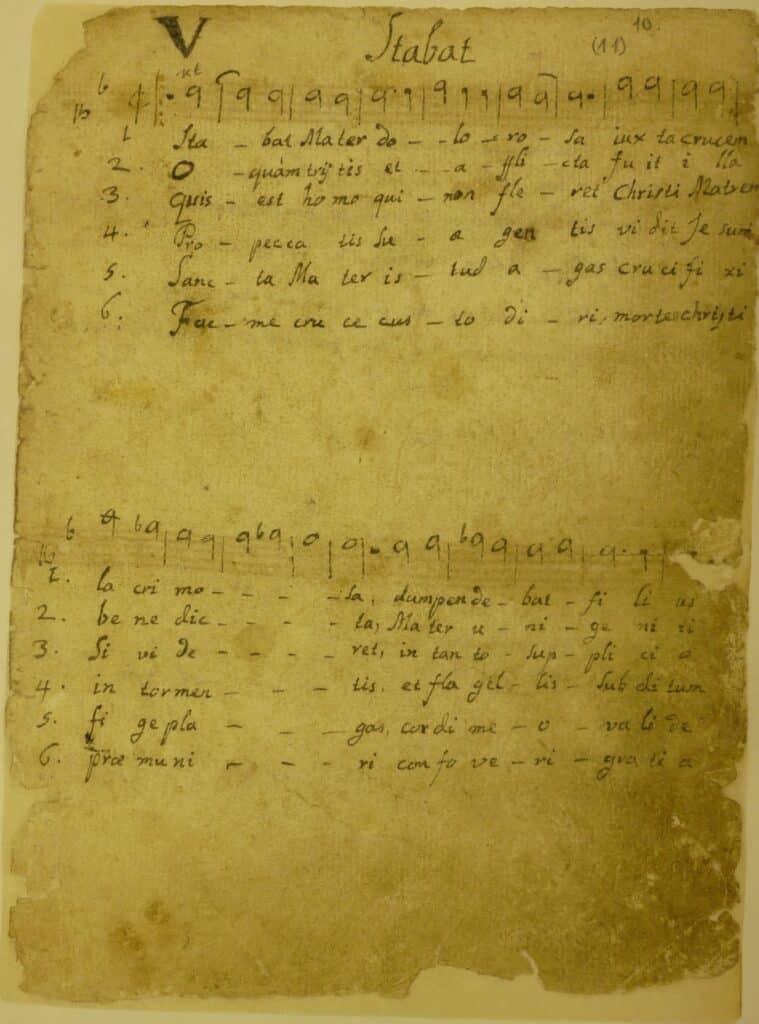 V Stabat (11) 10.
1 Sta - bat Mater do - - lo - ro - sa iuxta crucem
2. O - quám tristis et - - a - ffli - cta fu it i lla
3. Quis - est ho mo qui - non fle - ret Christi Matrem
4. Pro - pecca tis su - a gen tis vi dit Je sum
5. Sanc - ta Ma ter is - tud a - gas cru ci fi xi
6. Fac - me cru ce cus - to di - ri, morte christi
1. la cri mo - - - - sa, dum pen de - bat - fi li us
2. be ne dic - - - - ta, Ma ter u - ni - ge ni ti
3. Si vi de - - - - ret, in tan to - sup - pli ci o
4. in tormen - - - tis, et fla gel - lis - sub di tum
5. fi ge pla - - - gas, cor di me - o - va li de
6. præ mu ni - - - ri con fo ve - ri - gra ti a